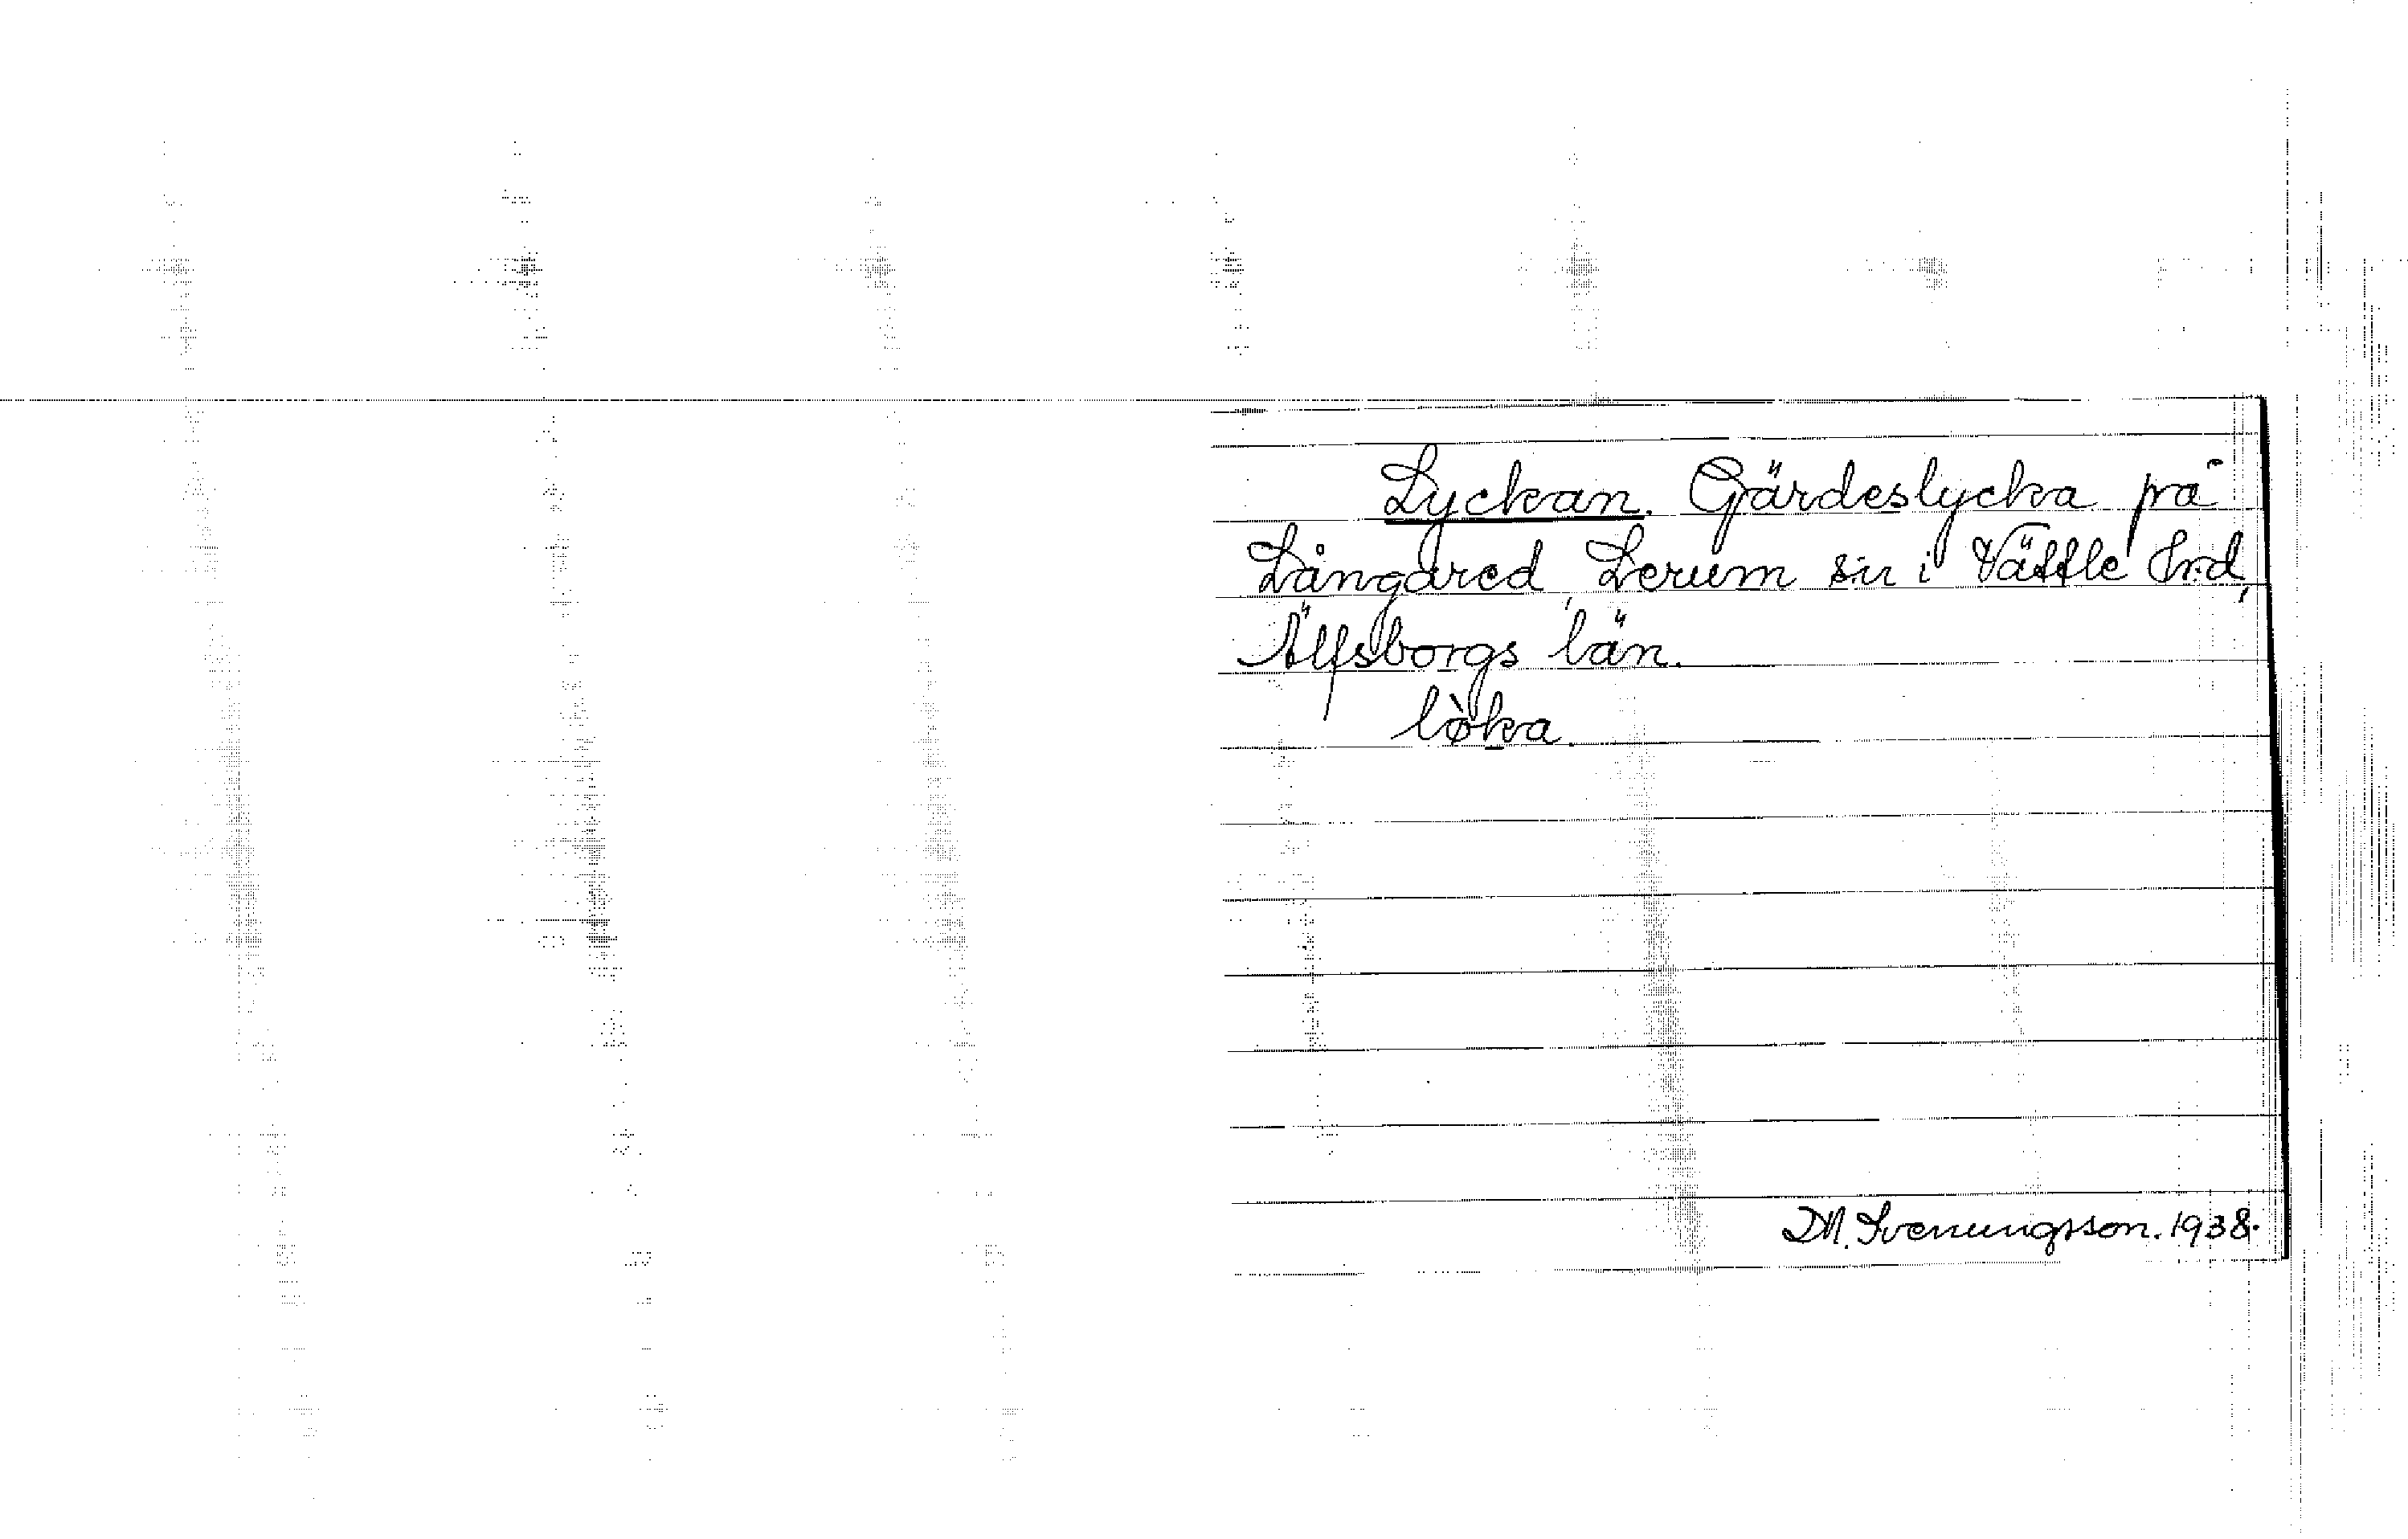 Lyckan. Gärdeslycka på
Långared, Lerum sn i Vättle Hrd,
Älfsborgs län.
lø̀ka
D.M. Svenungsson. 1938.